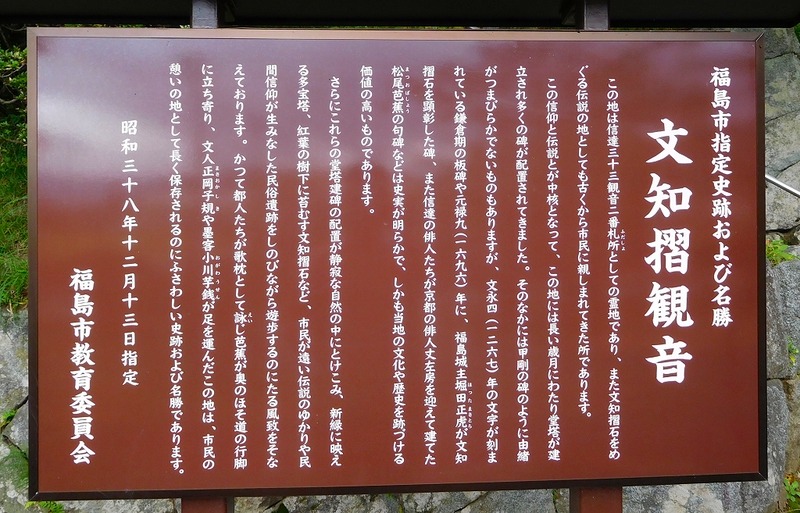 福島市指定史跡および名勝
文知摺観音
この地は信達三十三観音二番札所としての霊地であり、また文知摺石をめ
ぐる伝説の地としても古くから市民に親しまれてきた所であります。
この信仰と伝説とが中核となって、この地には長い歳月にわたり堂塔が建
立され多くの碑が配置されてきました。そのなかには甲剛の碑のように由緒
がつまびらかでないものもありますが、文永四(一二六七)年の文字が刻ま
れている鎌倉期の板碑や元禄九(一六九六)年に、福島城主堀田正虎が文知
摺石を顕彰した碑、また信達の俳人たちが京都の俳人丈左房を迎えて建てた
松尾芭蕉の句碑などは史実が明らかで、しかも当地の文化や歴史を跡づける
価値の高いものであります。
さらにこれらの堂塔建碑の配置が静寂な自然の中にとけこみ、新緑に映え
る多宝塔、紅葉の樹下に苔むす文知摺石など、市民が遠い伝説のゆかりや民
間信仰が生みなした民俗遺跡をしのびながら遊歩するのにたる風致をそな
えております。かつて都人たちが歌枕として詠じ芭蕉が奥のほそ道の行脚
に立ち寄り、文人正岡子規や墨客小川芋銭が足を運んだこの地は、市民の
憩いの地として長く保存されるのにふさわしい史跡および名勝であります。
昭和三十八年十二月十三日指定
福島市教育委員会